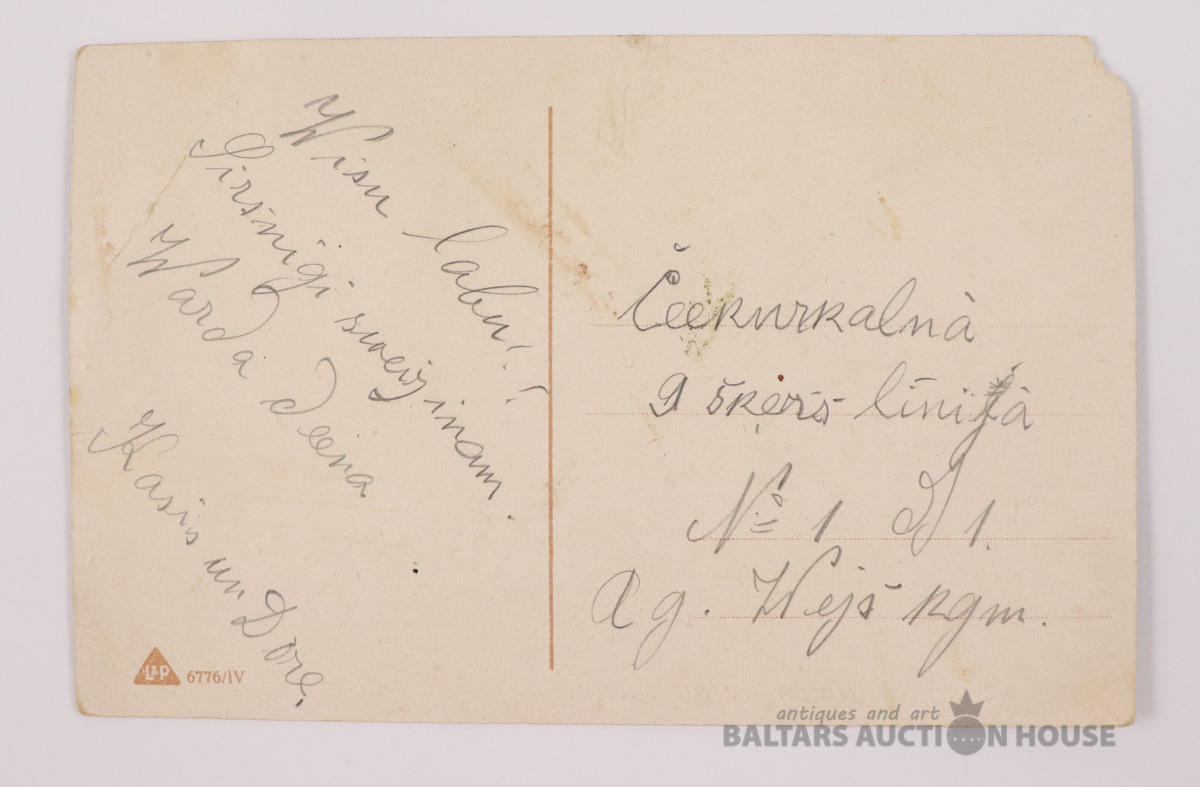 Wisu labu!!
Sirsnigi sweizinam.
Warda deena
Kasis un Dore.
L&P 6776/IV
Čeekurkalnà
9 škers līnijà
№ 1 D 1.
Ag. Wejš kgm.
antiques and art
BALTARS AUCTION HOUSE